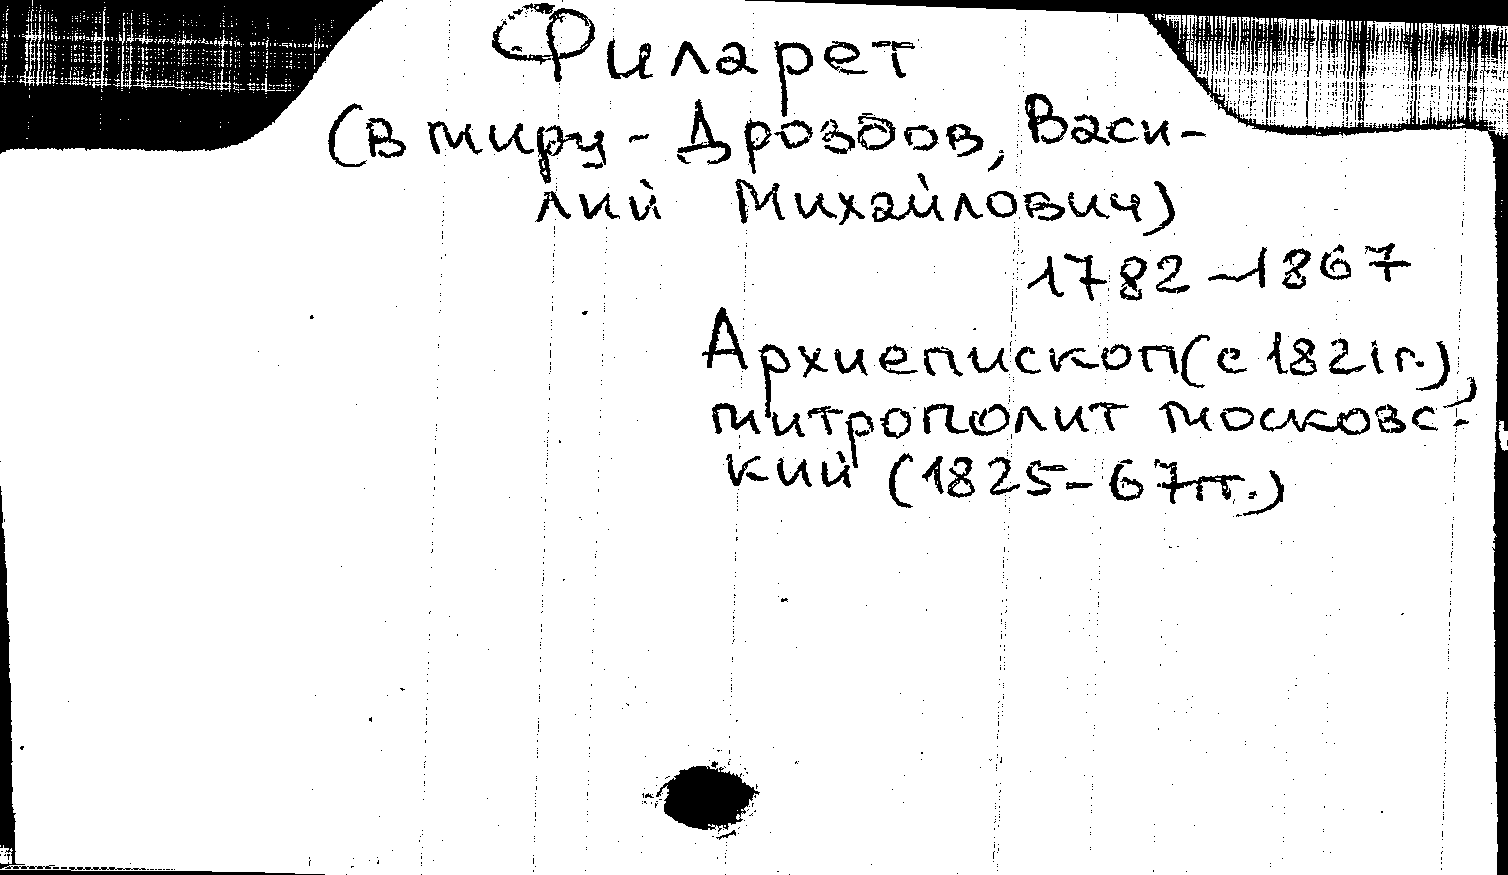 Филарет
(в миру - Дроздов, Васи-
лий Михайлович)
1782-1867
Архиепископ (с 1821 г.),
митрополит московс-
кий (1825-67гг.)